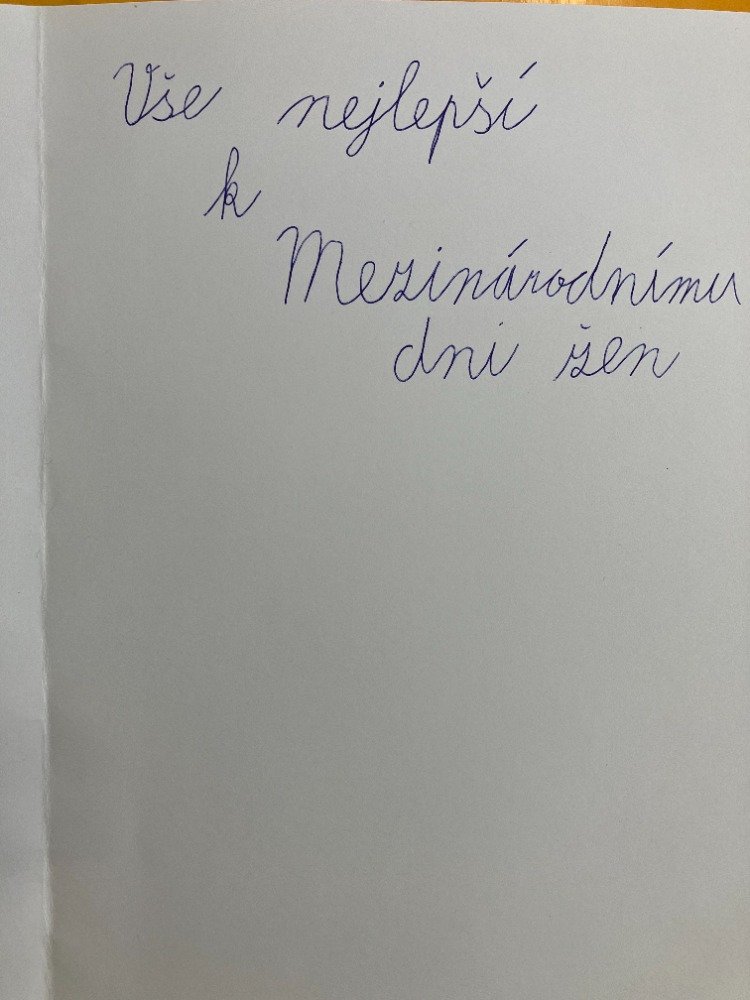 Vše nejlepší
k
Mezinárodnímu
dni žen